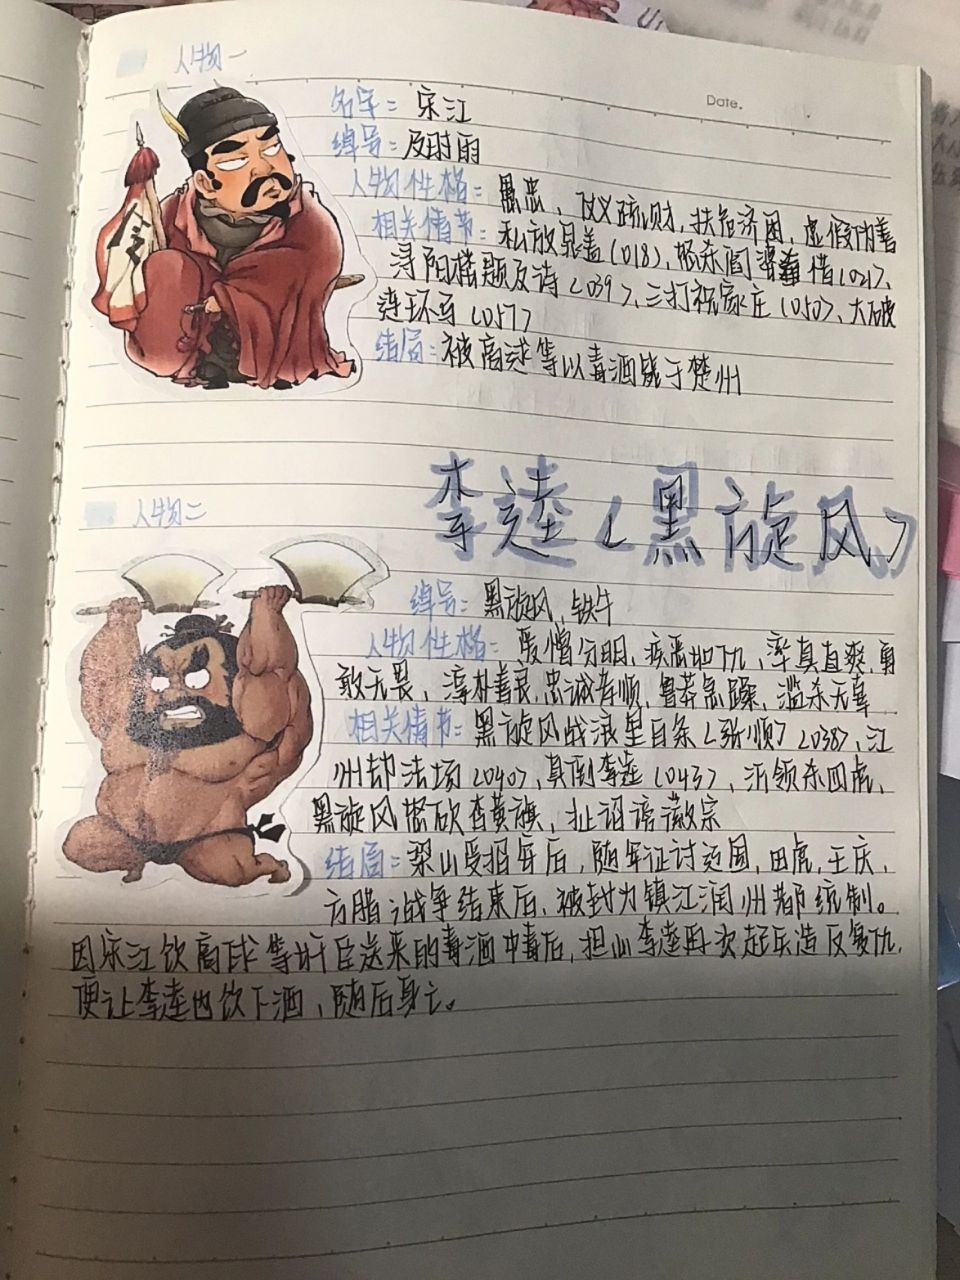 人物一
Date.
名字:宋江
绰号:及时雨
人物性格:愚忠、仗义疏财,扶危济困,虚假伪善
相关情节:私放晁盖(018),怒杀阎婆惜(021)、
浔阳楼题反诗(039)、三打祝家庄(050)、大破
连环马(057)
结局:被高逑等以毒酒毙于楚州
李逵(黑旋风)
人物二
令
绰号:黑旋风、铁牛
人物性格:爱憎分明,疾恶如仇、率真直爽,勇
敢无畏、淳朴善良,忠诚孝顺,鲁莽急躁、滥杀无辜
相关情节:黑旋风战浪里白条(张顺)(038)、江
州劫法场(040)、真假李逵(043)、沂领杀四虎、
黑旋风怒砍杏黄旗、扯诏谤徽宗
结局:梁山受招安后,随军征讨辽国,田虎,王庆、
方腊战争结束后、被封为镇江润州都统制。
因宋江饮高俅等奸臣送来的毒酒中毒后,担心李逵再次起兵造反复仇,
便让李逵也饮下酒,随后身亡。